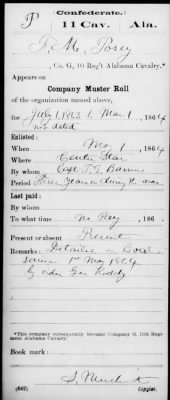 Confederate.
P 11 Cav. Ala.
T. M. Posey
, Co. G, 10 Reg't Alabama Cavalry.*
Appears on
Company Muster Roll
of the organization named above,
for July 1, 1863 to Mar 1, 1864
not dated
Enlisted:
When May 1, 186
Where Center Star
By whom Capt T.
Period Three years or during the war
Last paid:
By whom
To what time No Pay, 186 .
Present or absent Present
Remarks: Detailed on
service 1st May 1864
by order Gen Roddy
*This company subsequently became Company G, 10th Regiment Alabama Cavalry.
Book mark:
(642) Copyist.